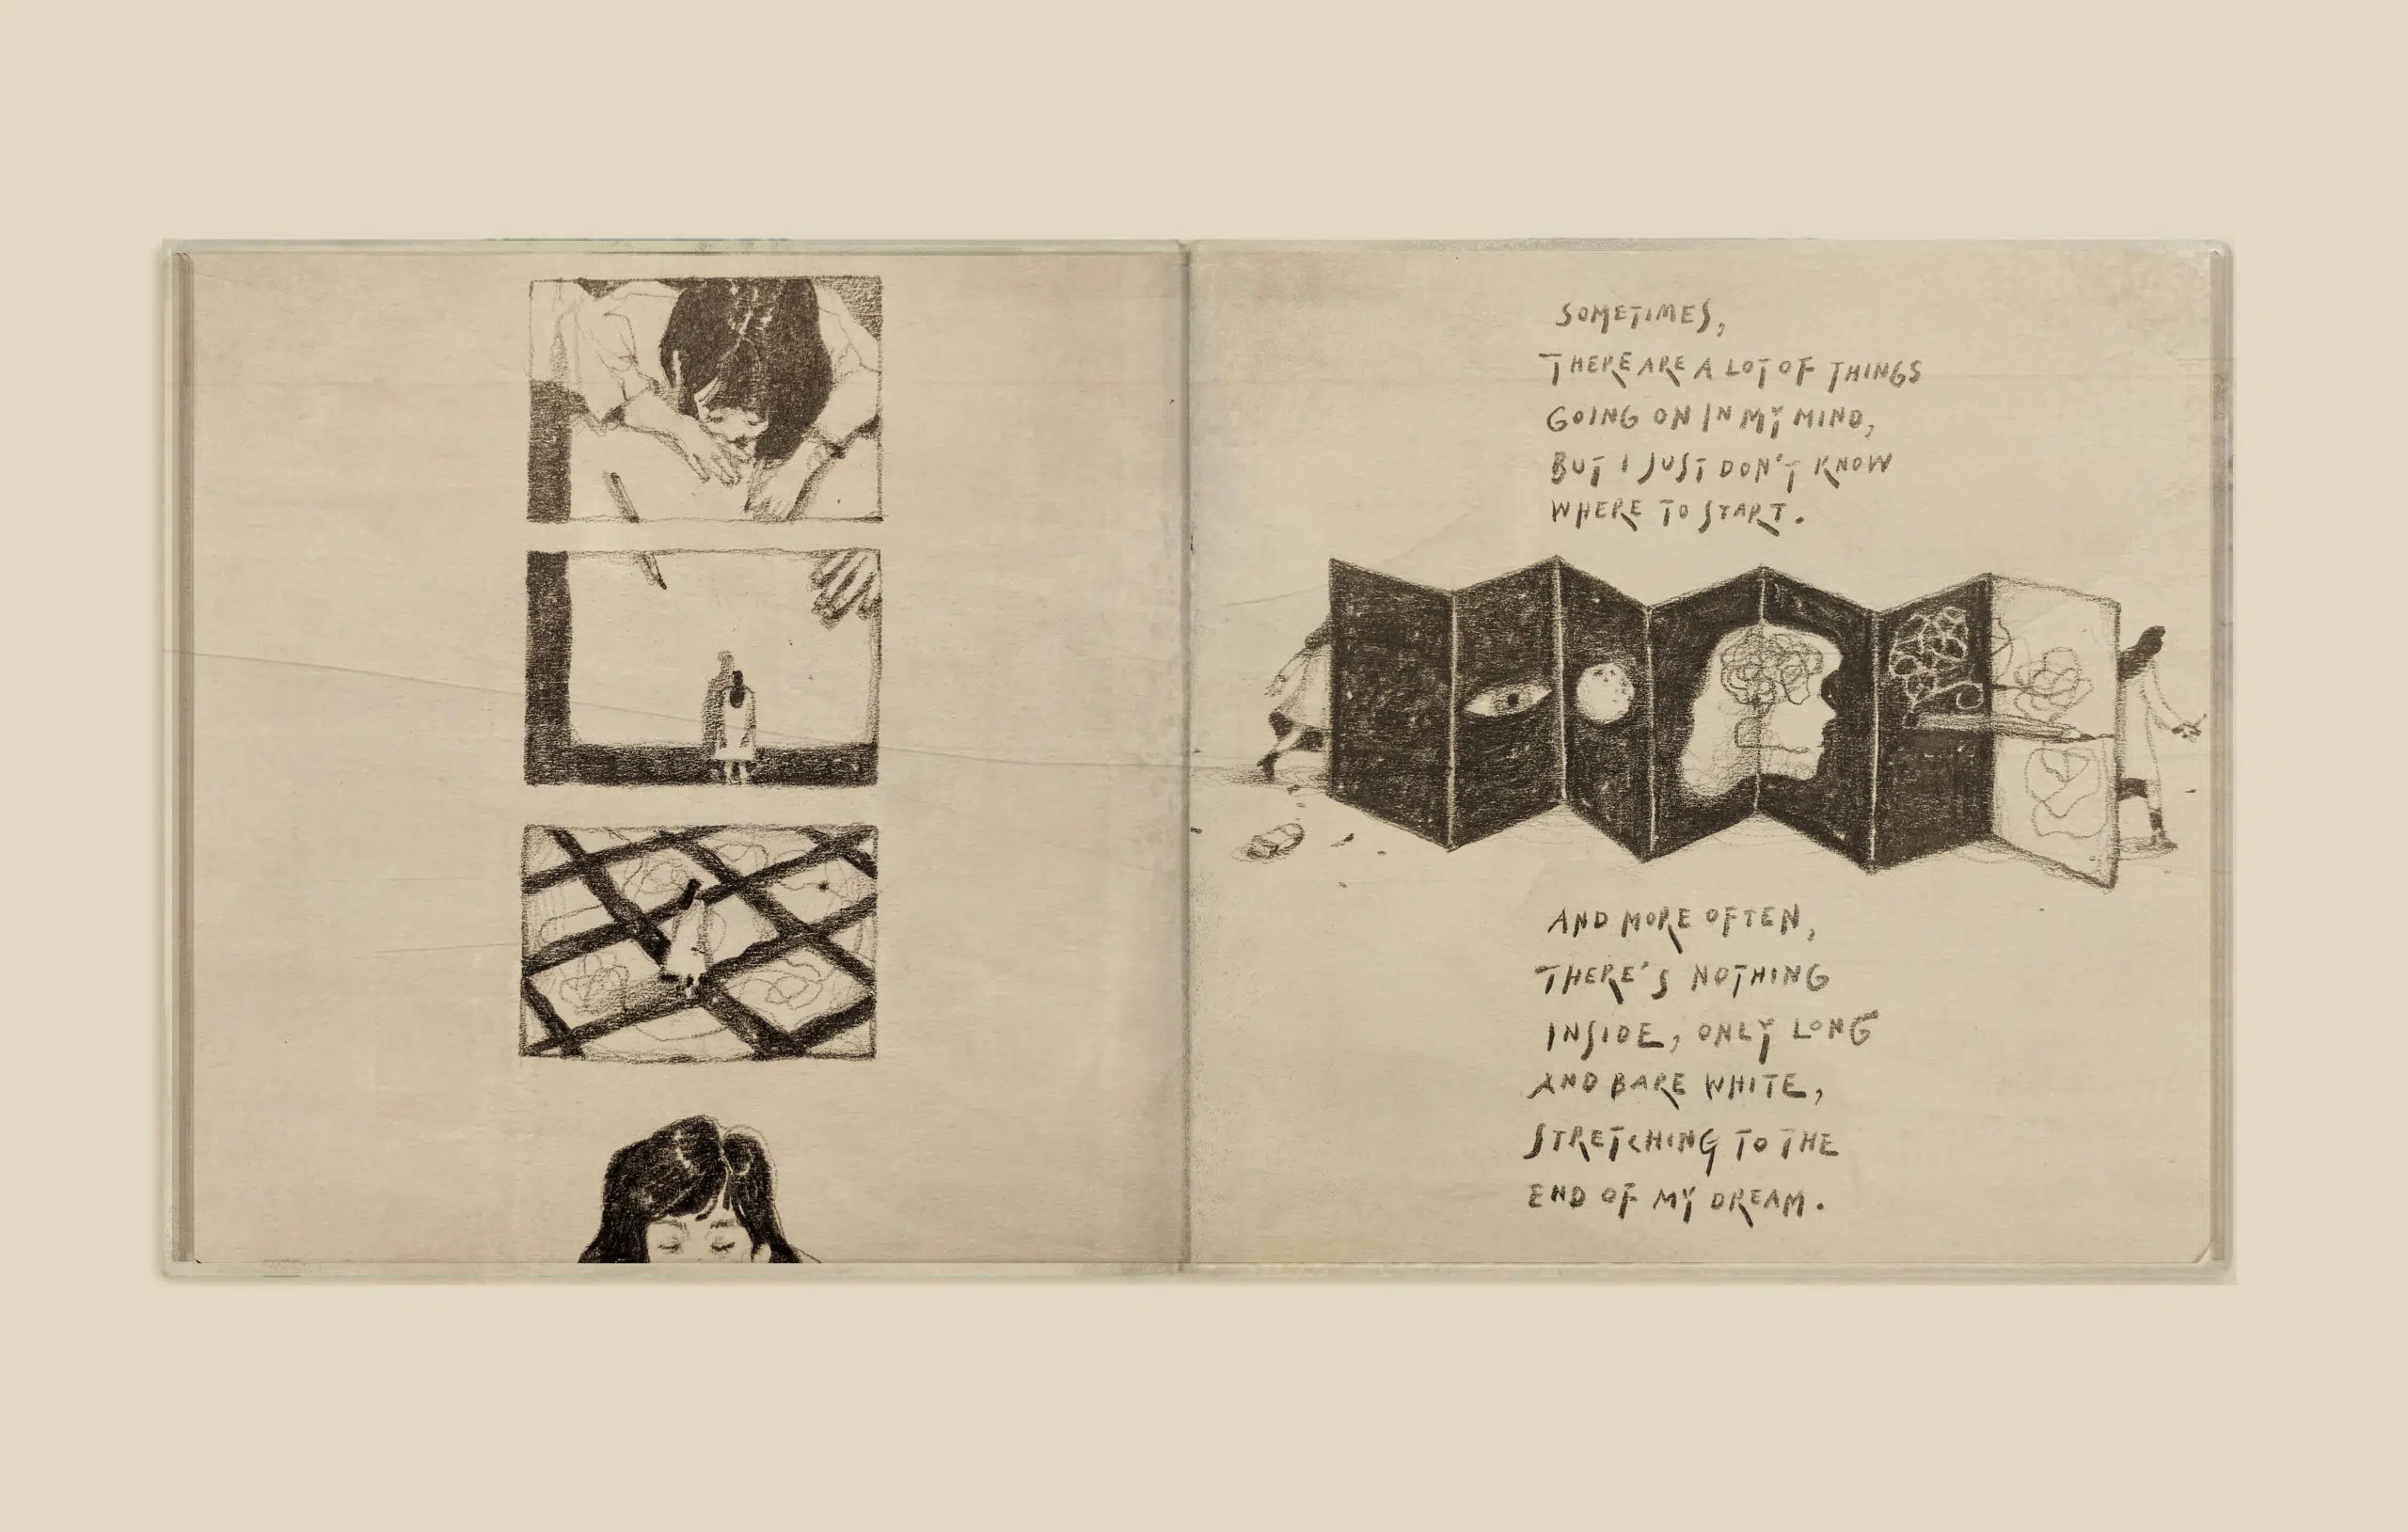 SOMETIMES,
THERE ARE A LOT OF THINGS
GOING ON IN MY MIND,
BUT I JUST DON'T KNOW
WHERE TO START.
AND MORE OFTEN,
THERE'S NOTHING
INSIDE, ONLY LONG
AND BARE WHITE,
STRETCHING TO THE
END OF MY DREAM.